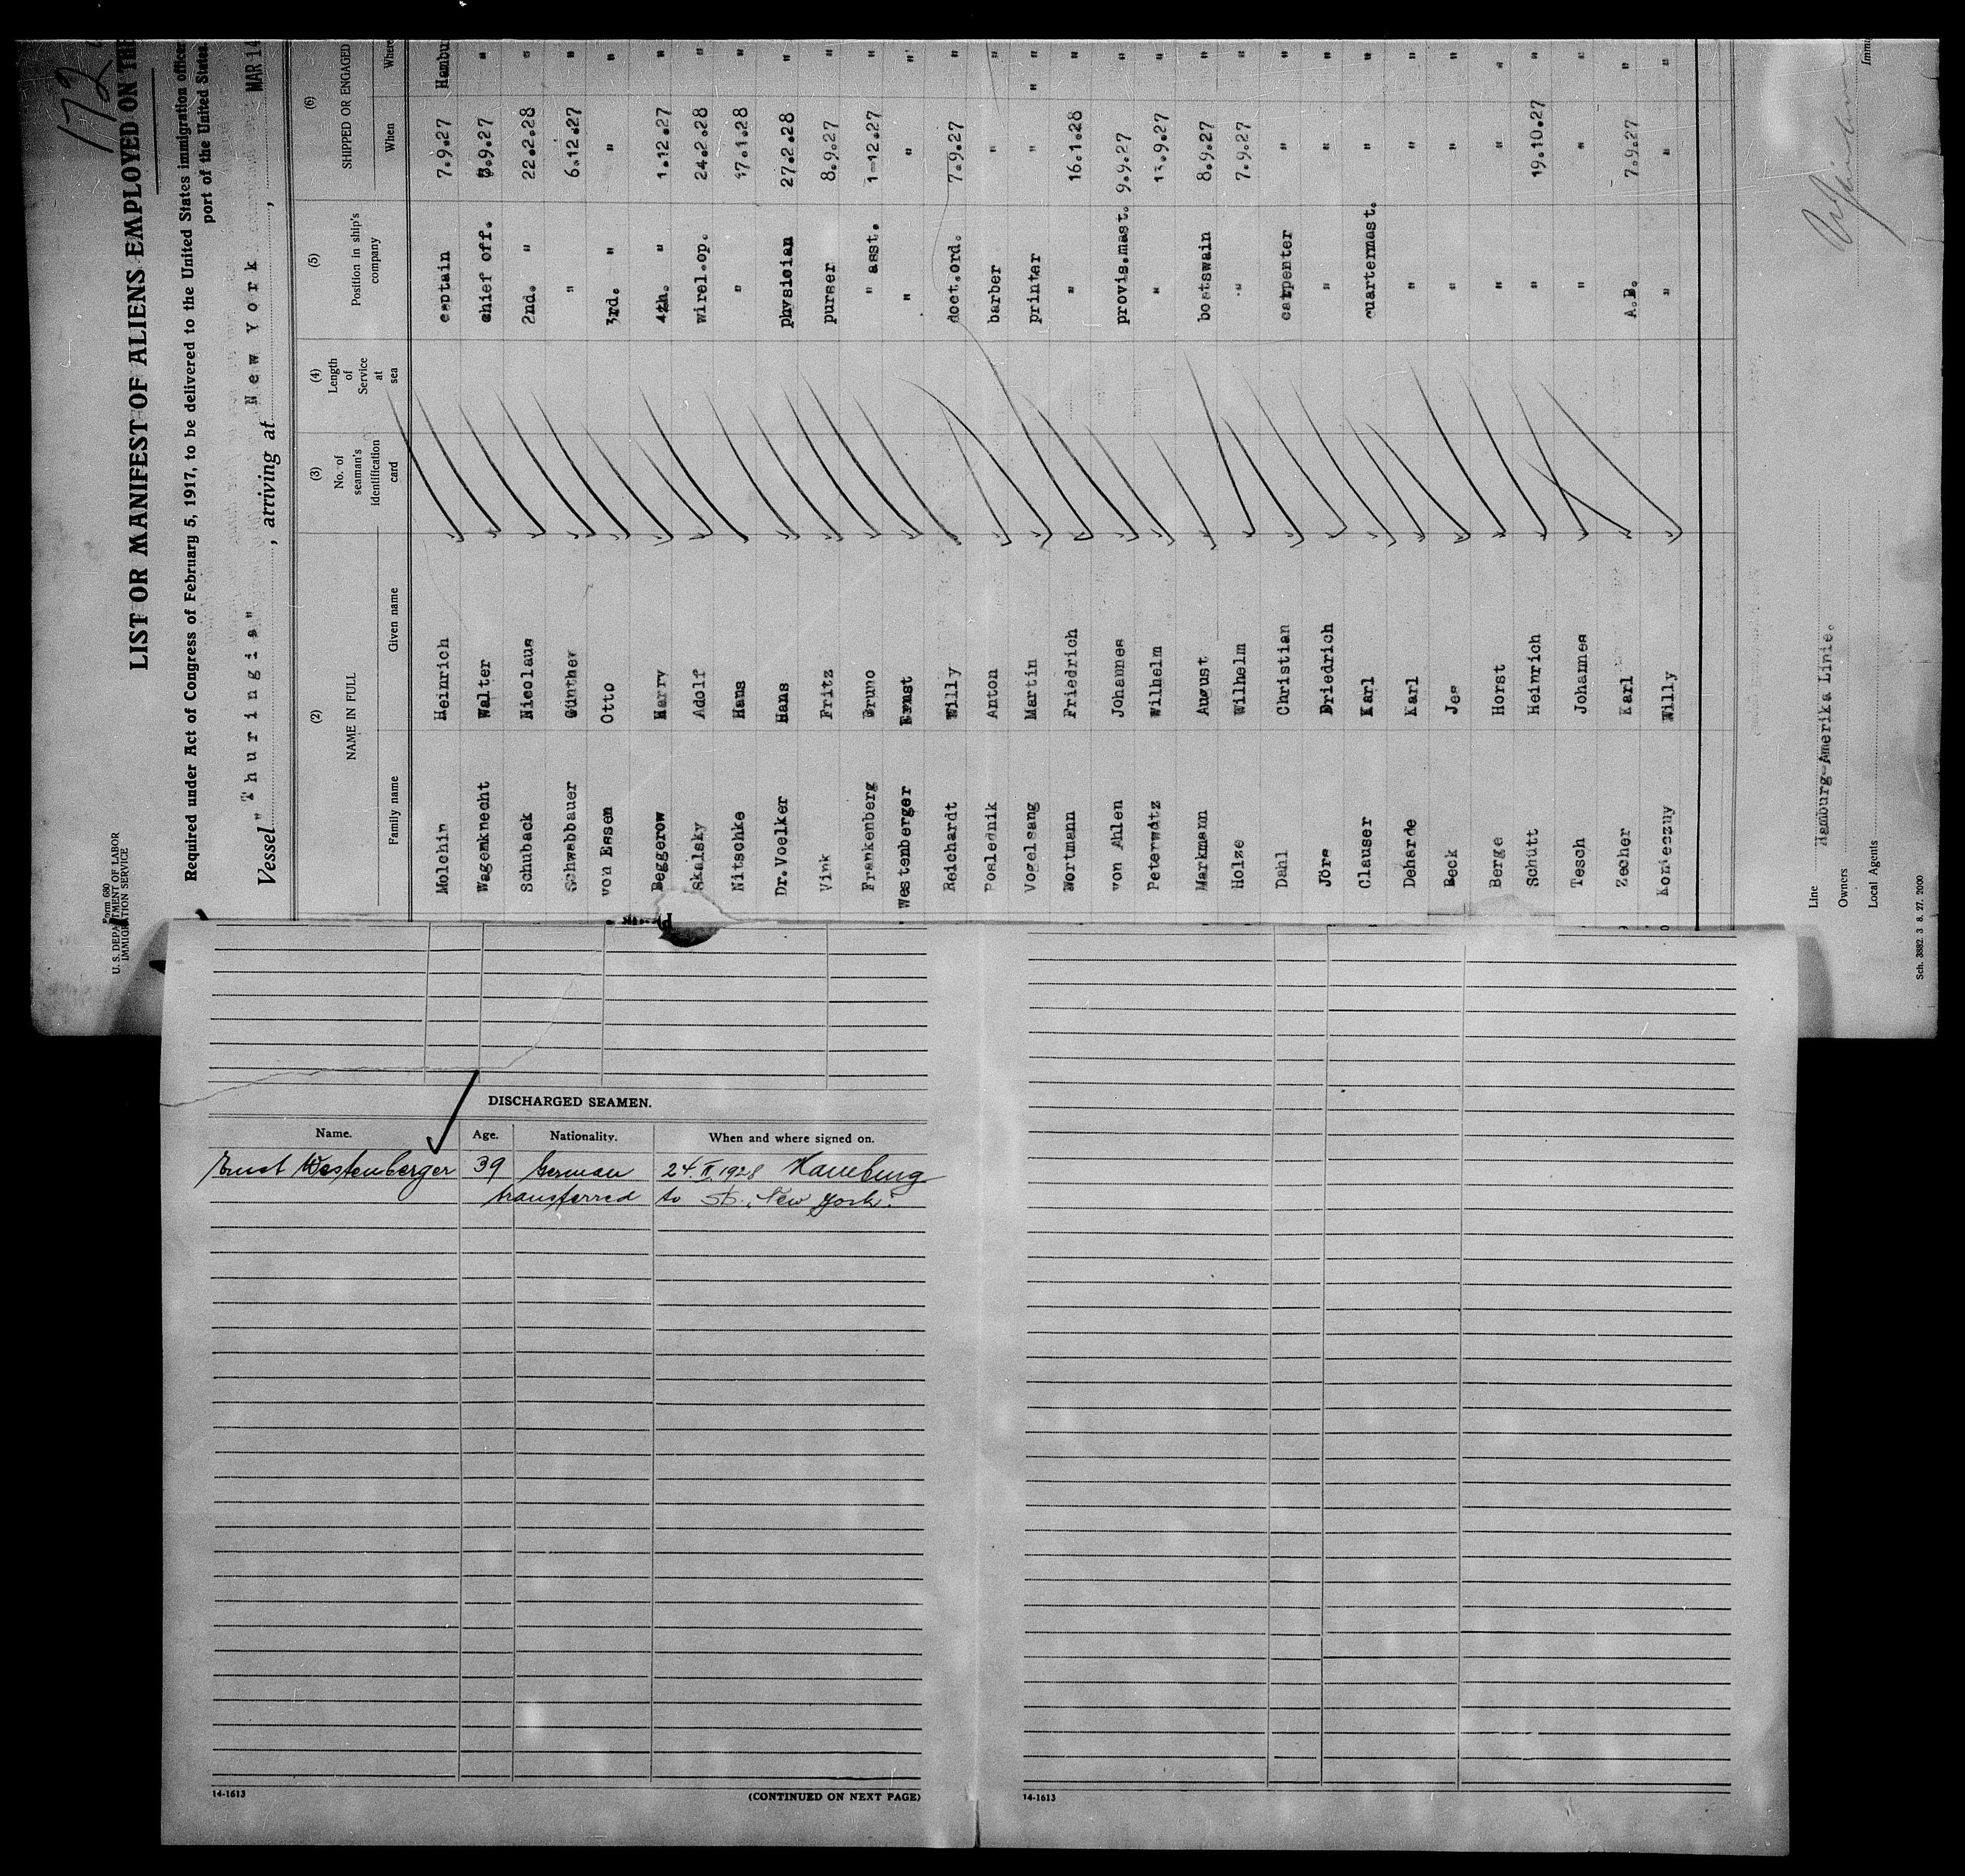 172
Form 680
U. S. DEPARTMENT OF LABOR
IMMIGRATION SERVICE
LIST OR MANIFEST OF ALIENS EMPLOYED ON THE
Required under Act of Congress of February 5, 1917, to be delivered to the United States immigration officer
port of the United States.
Vessel "Thuringia", arriving at New York, MAR 14
(2) (3) (4) (5) (6)
NAME IN FULL No. of seaman's identification card Length of Service at sea Position in ship's company SHIPPED OR ENGAGED
Family name Given name When Where
Molchin Heinrich captain 7.9.27 Hambu
Wagemknecht Walter chief off. 8.9.27 "
Schuback Nicolaus 2nd. " 22.2.28 "
Schwabbauer Günther " 6.12.27 "
von Essen Otto 3rd. " " "
Beggerow Harry 4th. " 1.12.27 "
Skalsky Adolf wirel.op. 24.2.28 "
Nitschke Hans " 17.1.28 "
Dr.Voelker Hans physician 27.2.28 "
Vink Fritz purser 8.9.27 "
Frankenberg Bruno " asst. 1-12.27 "
Westenberger Ernst " " "
Reichardt Willy doct.ord. 7.9.27 "
Poslednik Anton barber " "
Vogelsang Martin printer " " "
Wortmann Friedrich " 16.1.28 "
von Ahlen Johannes provis.mast. 9.9.27 "
Peterwitz Wilhelm " 13.9.27 "
Markmann August boatswain 8.9.27 "
Holze Wilhelm " 7.9.27 "
Dahl Christian carpenter " "
Jörs Friedrich " " "
Clauser Karl quartermast. " "
Deharde Karl " " "
Beck Jes " " "
Berge Horst " " "
Schütt Heinrich " 19.10.27 "
Tesch Johannes " " "
Zecher Karl A.B. 7.9.27 "
Konieszny Willy " " "
Line Hamburg-Amerika Linie.
Owners
Local Agents
Immi
Sch. 3882. 3 8. 27. 2000
DISCHARGED SEAMEN.
Name. Age. Nationality. When and where signed on.
Ernst Westenberger 39 German 24.II.1928 Hamburg
transferred to St. New York.
14-1613 (CONTINUED ON NEXT PAGE) 14-1613